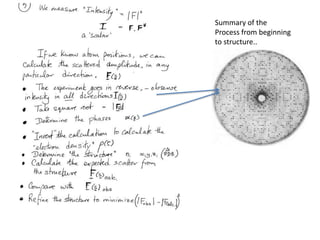 ⑦ We measure "Intensity" = |F|²
I = F.F*
a 'scalar'
If we know atom positions, we can
calculate the scattered amplitude, in any
particular direction, F(s)
• The experiment goes in reverse, - observe
intensity in all directions I(s)
• Take square root = |F|
• Determine the phases α(s)
• "Invert" the calculation to calculate the
"electron density" ρ(r)
• Determine the "structure"
• Calculate the expected scatter from
the structure F(s)calc.
• Compare with F(s)obs
• Refine the structure to minimize (|Fobs| - |Fcalc|)
Summary of the
Process from beginning
to structure..